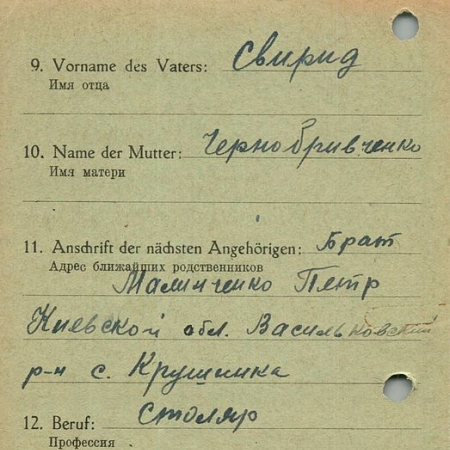 9. Vorname des Vaters: Свирид
Имя отца
10. Name der Mutter: Чернобривченко
Имя матери
11. Anschrift der nächsten Angehörigen: Брат
Адрес ближайших родственников
Малинченко Петр
Киевской обл. Васильковский
р-н с. Крушинка
12. Beruf: Столяр
Профессия